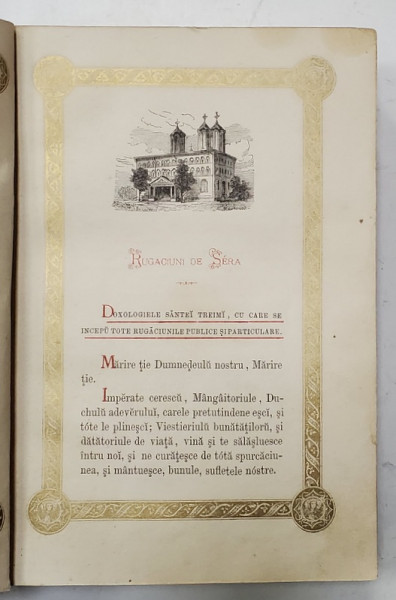 RUGACIUNI DE SÉRA
DOXOLOGIELE SÂNTEĬ TREIMĬ, CU CARE SE
INCEPŬ TOTE RUGĂCIUNILE PUBLICE ȘIPARTICULARE.
Mărire ție Dumneḑeulŭ nostru, Mărire
ție.
Împérate cerescŭ, Mângâitoriule, Du-
chulŭ adevĕruluĭ, carele pretutindene eșcĭ, și
tóte le plineșcĭ; Viestieriulŭ bunătăților̆ŭ, și
dătătoriule de viață, vină și te sălășluesce
întru noĭ, și ne curățeșce de tótă spurcăciu-
nea, și mântueșce, bunule, sufletele nóstre.